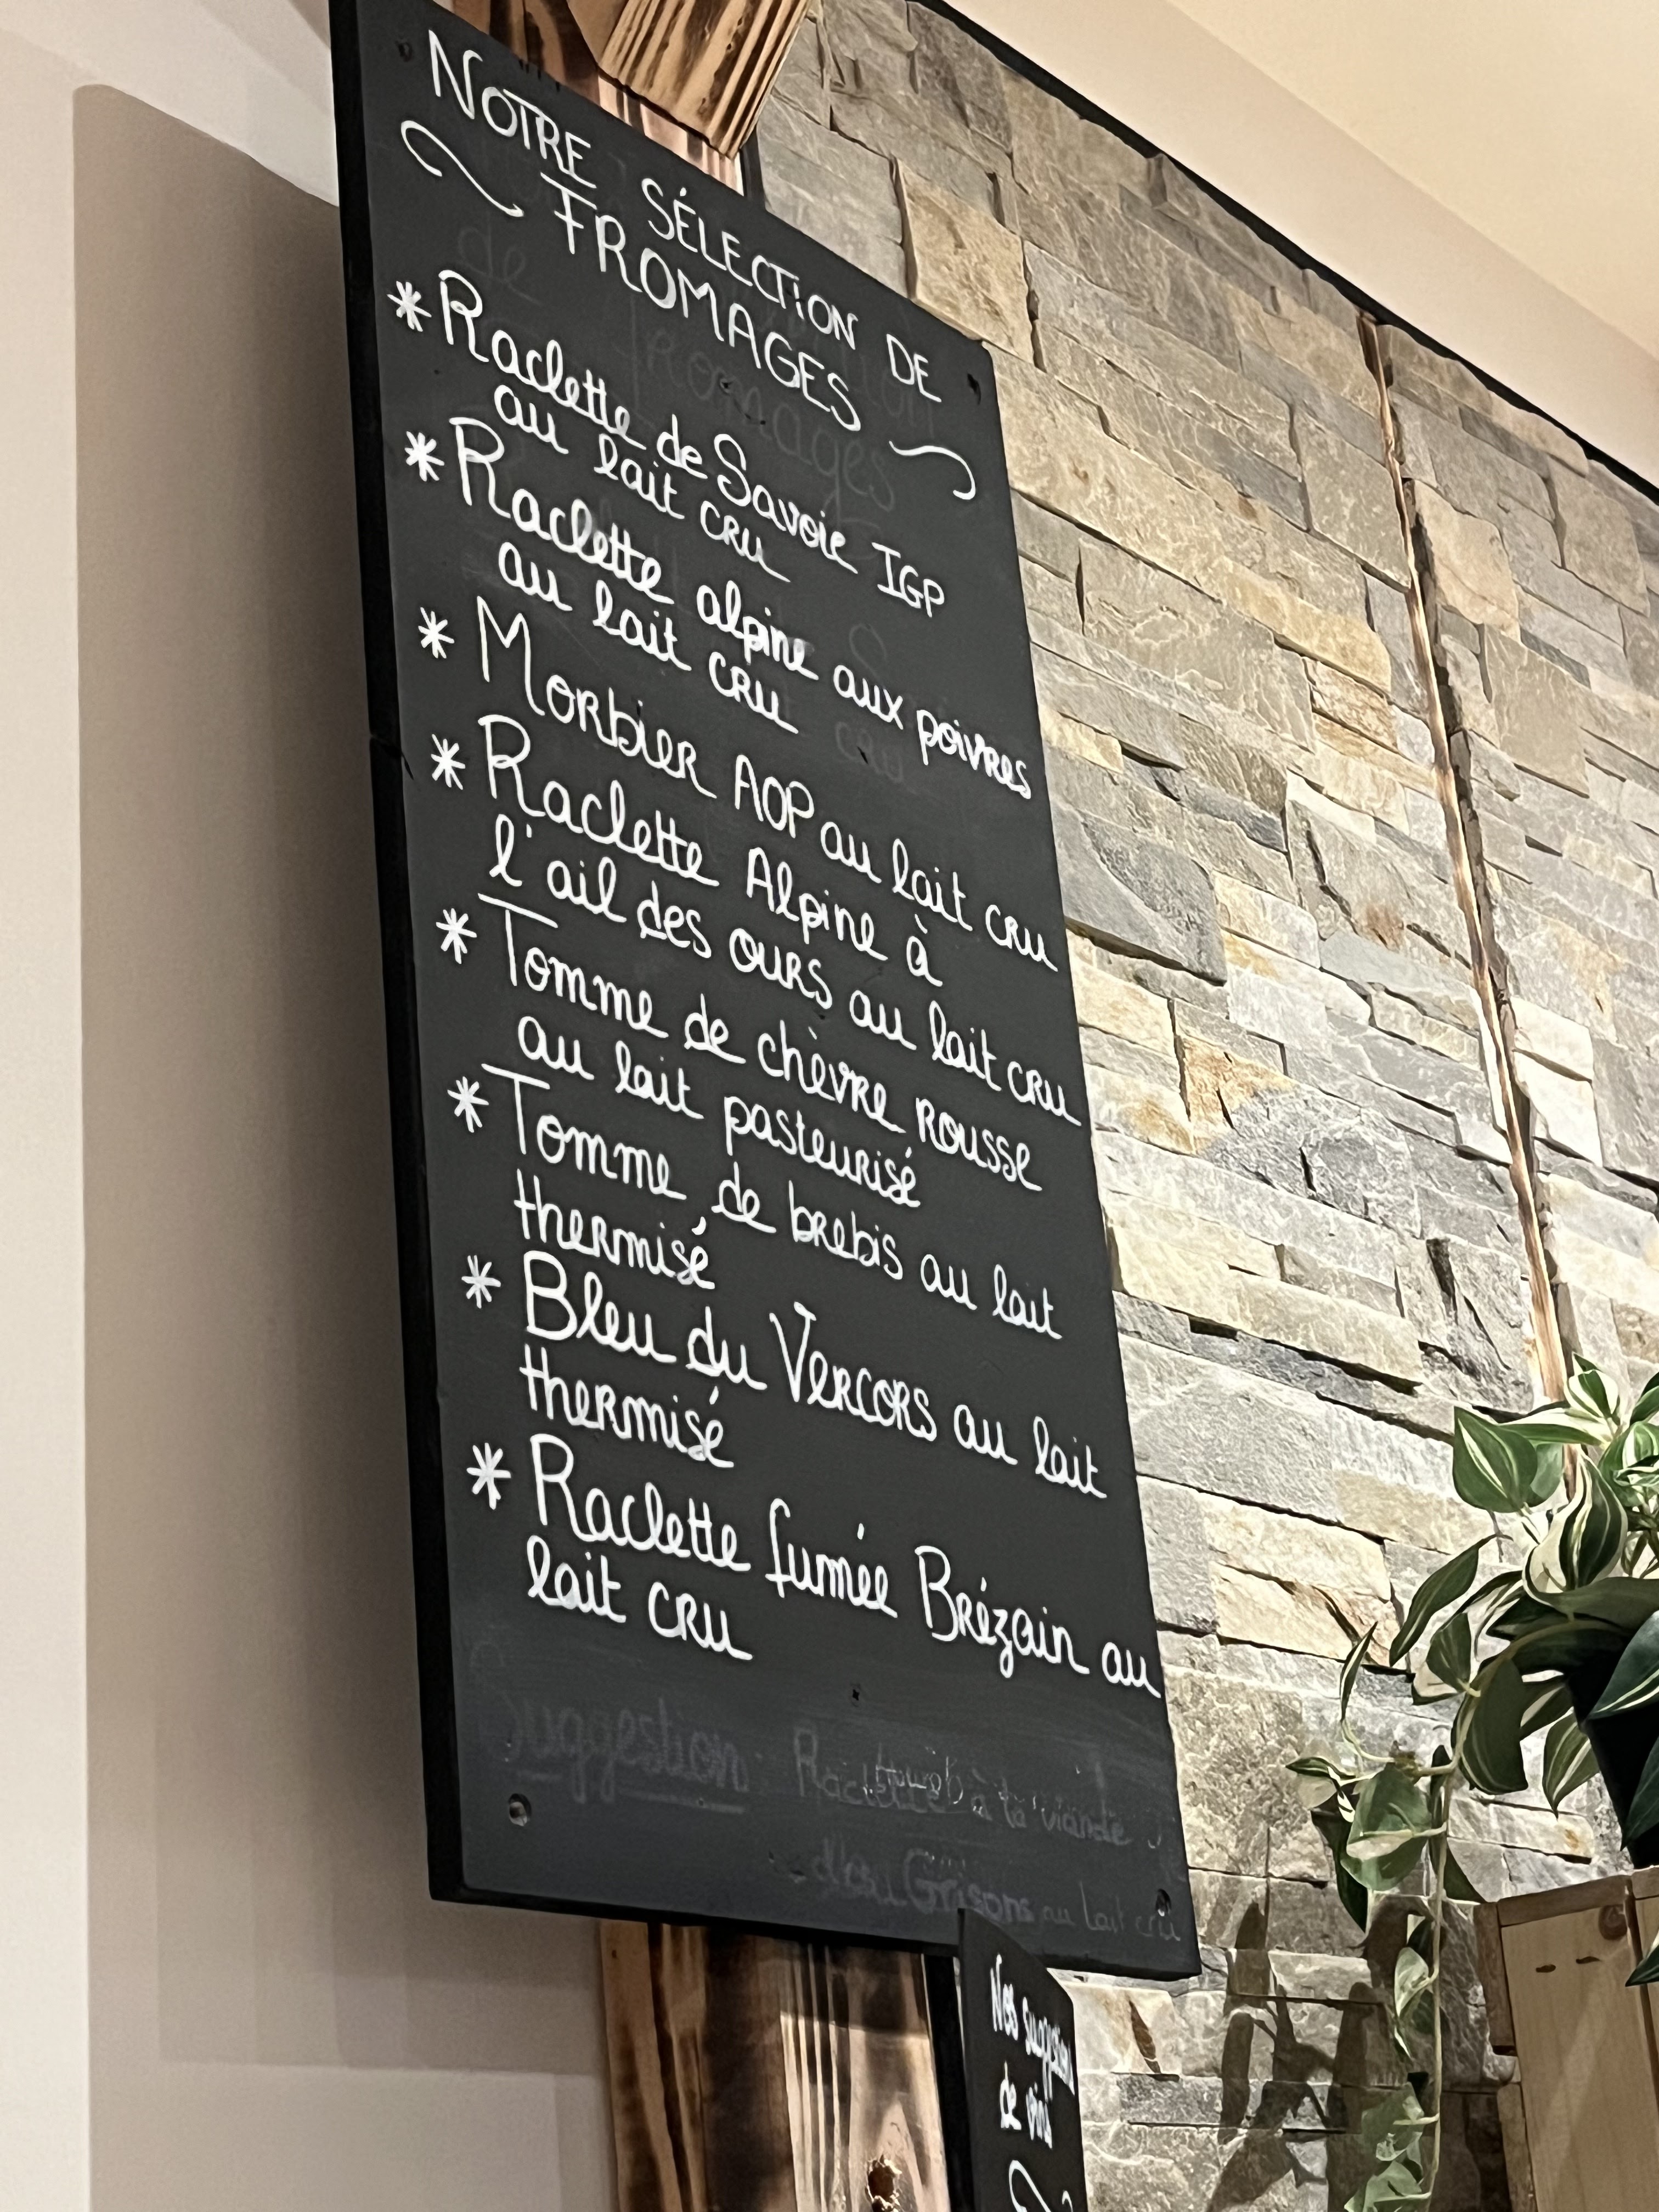 NOTRE SÉLECTION DE
FROMAGES
* Raclette de Savoie IGP
au lait cru
* Raclette alpine aux poivres
au lait cru
* Morbier AOP au lait cru
* Raclette Alpine à
l'ail des ours au lait cru
* Tomme de chèvre rousse
au lait pasteurisé
* Tomme de brebis au lait
thermisé
* Bleu du Vercors au lait
thermisé
* Raclette fumée Brézain au
lait cru
Suggestion Raclette à la viande
des Grisons au lait cru
Nos suggestions
de vins